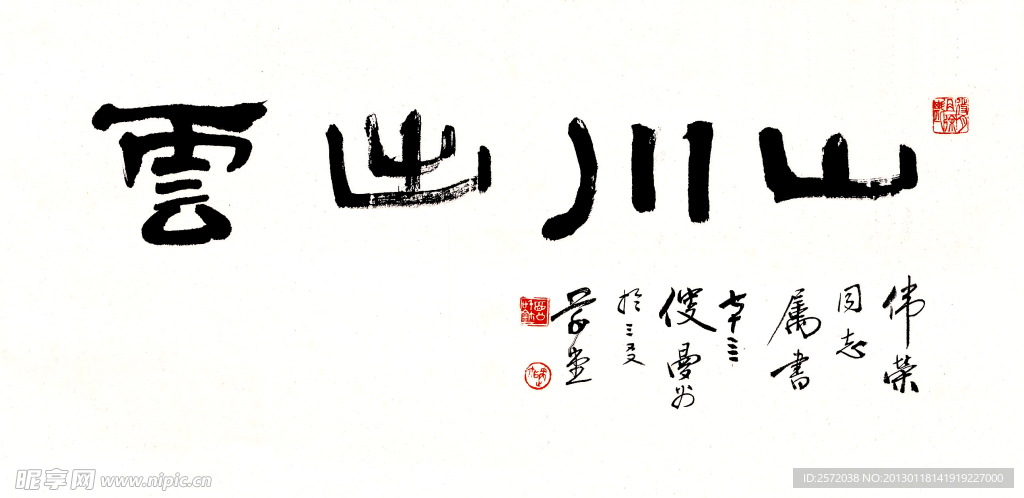 山川出雲
伟荣
同志
属书
七十三
叟曼
於三
昵享网 www.nipic.cn
ID:2572038 NO:20130118141919227000